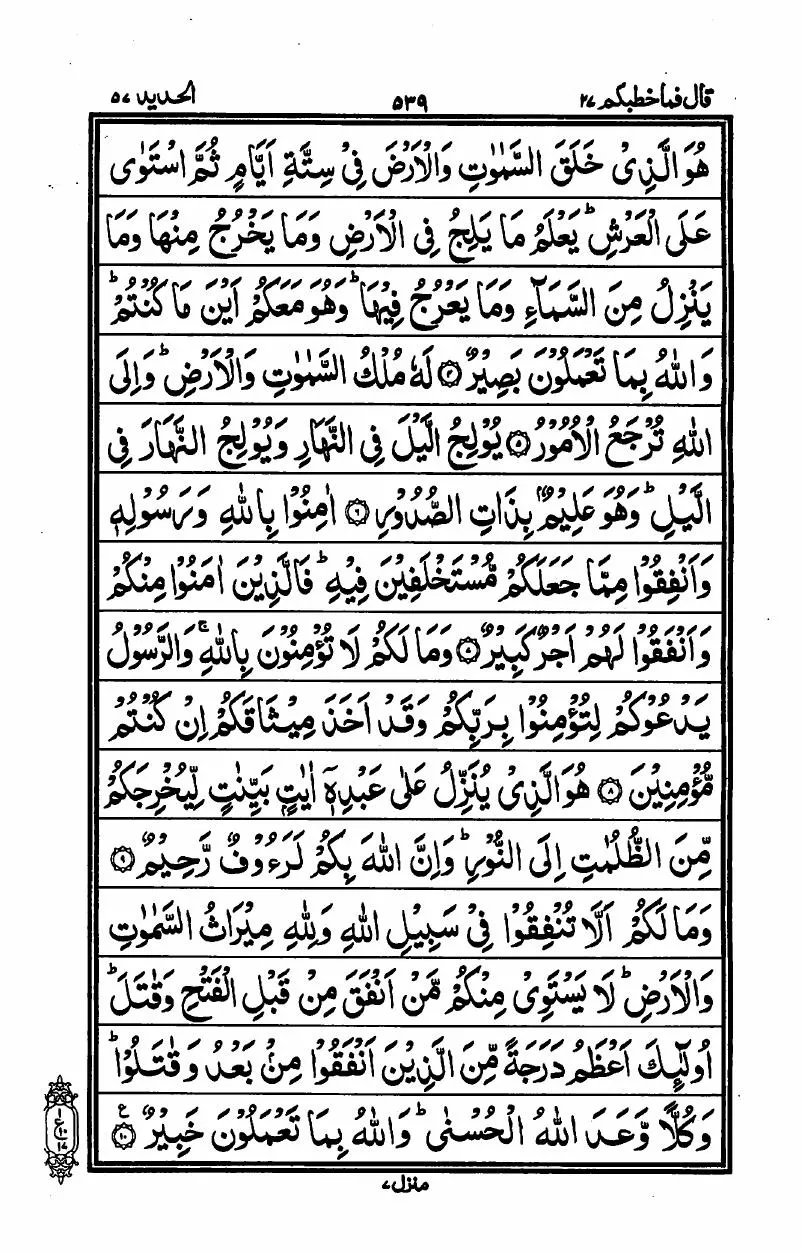 قال فما خطبکم ۲۷
۵۳۹
الحدید ۵۷
هُوَ الَّذِیْ خَلَقَ السَّمٰوٰتِ وَالْاَرْضَ فِیْ سِتَّةِ اَیَّامٍ ثُمَّ اسْتَوٰی
عَلَی الْعَرْشِ ؕ یَعْلَمُ مَا یَلِجُ فِی الْاَرْضِ وَمَا یَخْرُجُ مِنْهَا وَمَا
یَنْزِلُ مِنَ السَّمَآءِ وَمَا یَعْرُجُ فِیْهَا ؕ وَهُوَ مَعَکُمْ اَیْنَ مَا کُنْتُمْ ؕ
وَاللّٰهُ بِمَا تَعْمَلُوْنَ بَصِیْرٌ ۴ لَهٗ مُلْکُ السَّمٰوٰتِ وَالْاَرْضِ ؕ وَاِلَی
اللّٰهِ تُرْجَعُ الْاُمُوْرُ ۵ یُوْلِجُ الَّیْلَ فِی النَّهَارِ وَیُوْلِجُ النَّهَارَ فِی
الَّیْلِ ؕ وَهُوَ عَلِیْمٌۢ بِذَاتِ الصُّدُوْرِ ۶ اٰمِنُوْا بِاللّٰهِ وَرَسُوْلِهٖ
وَاَنْفِقُوْا مِمَّا جَعَلَکُمْ مُّسْتَخْلَفِیْنَ فِیْهِ ؕ فَالَّذِیْنَ اٰمَنُوْا مِنْکُمْ
وَاَنْفَقُوْا لَهُمْ اَجْرٌ کَبِیْرٌ ۷ وَمَا لَکُمْ لَا تُؤْمِنُوْنَ بِاللّٰهِ ۚ وَالرَّسُوْلُ
یَدْعُوْکُمْ لِتُؤْمِنُوْا بِرَبِّکُمْ وَقَدْ اَخَذَ مِیْثَاقَکُمْ اِنْ کُنْتُمْ
مُّؤْمِنِیْنَ ۸ هُوَ الَّذِیْ یُنَزِّلُ عَلٰی عَبْدِهٖۤ اٰیٰتٍۭ بَیِّنٰتٍ لِّیُخْرِجَکُمْ
مِّنَ الظُّلُمٰتِ اِلَی النُّوْرِ ؕ وَاِنَّ اللّٰهَ بِکُمْ لَرَءُوْفٌ رَّحِیْمٌ ۹
وَمَا لَکُمْ اَلَّا تُنْفِقُوْا فِیْ سَبِیْلِ اللّٰهِ وَلِلّٰهِ مِیْرَاثُ السَّمٰوٰتِ
وَالْاَرْضِ ؕ لَا یَسْتَوِیْ مِنْکُمْ مَّنْ اَنْفَقَ مِنْ قَبْلِ الْفَتْحِ وَقٰتَلَ ؕ
اُولٰٓئِکَ اَعْظَمُ دَرَجَةً مِّنَ الَّذِیْنَ اَنْفَقُوْا مِنْۢ بَعْدُ وَقٰتَلُوْا ؕ
وَکُلًّا وَّعَدَ اللّٰهُ الْحُسْنٰی ؕ وَاللّٰهُ بِمَا تَعْمَلُوْنَ خَبِیْرٌ ۱۰ ع
منزل ۷